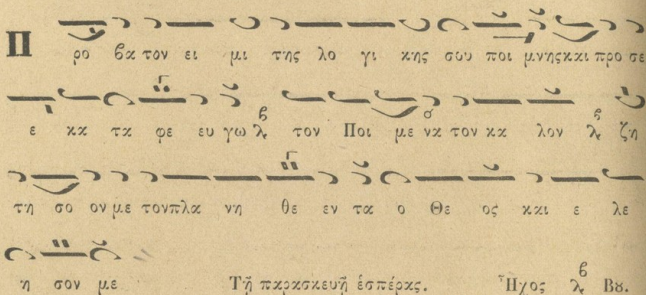 Π ρο βα τον ει μι της λο γι κης σου ποι μνης και προ σε
ε κα τα φε ευ γω λ β τον Ποι με να τον κα λον λ β ζη
τη σο ον με τον πλα νη θε εν τα ο Θε ος και ε λε
η σον με Τῇ παρασκευῇ ἑσπέρας. Ἦχος λ β Βυ.